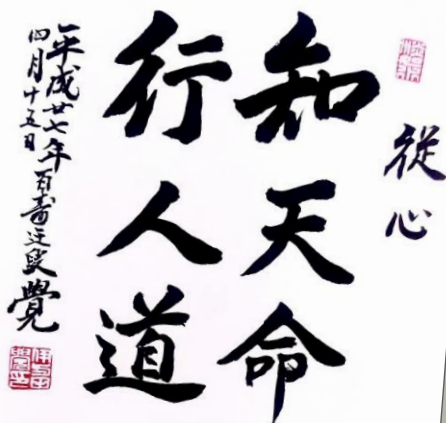 從心
知天命
行人道
平成廿七年百壽迂叟覺
四月十五日